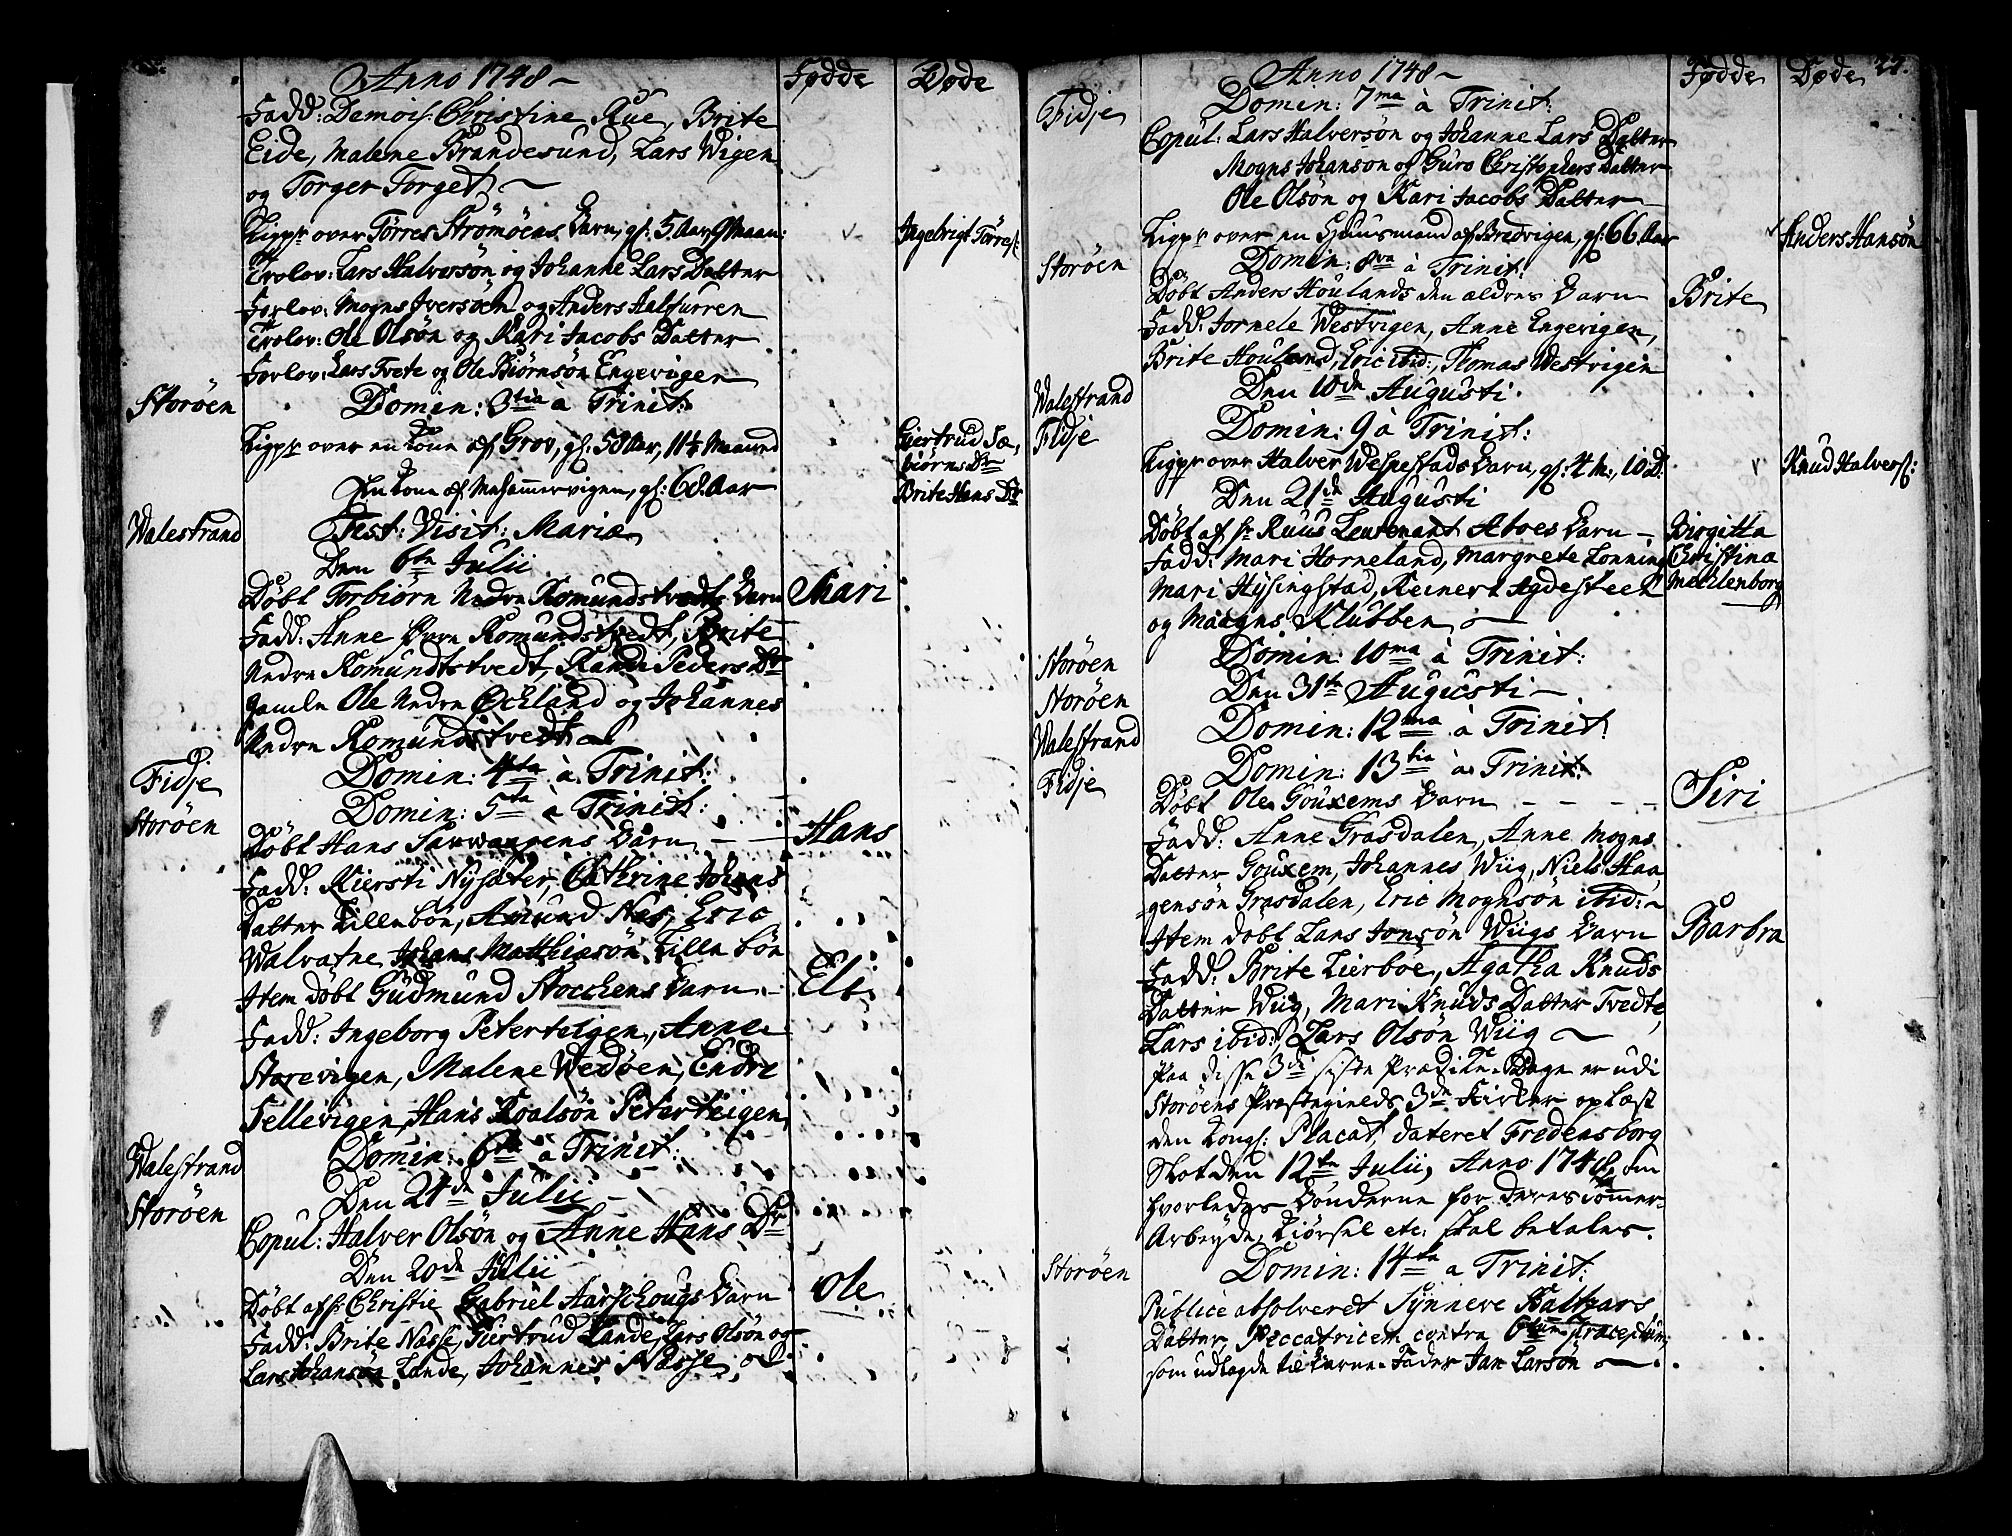 Anno 1748 Fødde Døde
Fadd: Demois: Christine Rue, Brite
Eide, Malene Brandesund, Lars Wigen
og Torger Torget
Ligpr over Tørres Strømøens Barn, gl: 5 Aar, 9 Maan: Ingebrigt Tørres:
Trolov: Lars Halversøn og Johanne Lars Datter
Forlov: Mogns Iversøen og Anders Aalfurren
Trolov: Ole Olsøn og Kari Jacobs Datter
Forlov: Lars Tvete og Ole Biørnsøn Engevigen
Storøen Domin: 3tia a Trinit:
Ligpr over en Kone af Grov, gl: 58 Aar, 11½ Maaned Giertrud Sæ,
biørns Dr
En Kone af Mehammervigen, gl: 68 Aar Brite Hans Dr
Walestrand Fest: Visit: Mariæ
Den 6te Julii
Døbt Torbiørn Nedre Romundstvedts Barn Mari
Fadd: Anne Øvre Romundstvedt, Brite
Nedre Romundtstvedt, Rande Peders Dr
gamle Ole Nedre Øckland og Johannes
Nedre Romundstvedt
Fidje Domin: 4ta à Trinit:
Storøen Domin: 5ta à Trinit:
Døbt Hans Sarwaagens Barn Hans
Fadd: Kiersti Nysæter, Cathrine Johans
Datter Lillebøn, Amund Nes, Eric
Walvatne Johans Matthiasøn Lille bøn
Item døbt Gudmund Stocchens Barn Eli
Fadd: Ingeborg Peterteigen, Anne
Storevigen, Malene Wedøen, Endre
Fellevigen, Hans Roalsøn Peterteigen
Walestrand Domin: 6ta a Trinit:
Storøen Den 24de Julii
Copul: Halver Olsøn og Anne Hans Dr
Den 20de Julii
Døbt af Hr Christie Gabriel Aarschougs Barn Ole
Fadd: Brite Nasse, Giertrud Lande, Lars Olsøn og
Lars Johansøn Lande, Johannes Nasse
Anno 1748 Fødde Døde 27.
Fidje Domin: 7ma à Trinit:
Copul: Lars Halversøn og Johanne Lars Datter
Mogns Johansøn og Guro Christophers Datter
Ole Olsøn og Kari Jacobs Datter
Ligpr over en Huusmand af Bredvigen, gl: 66 Aar Anders Hansøn
Storøen Domin: 8va à Trinit:
Døbt Anders Houlands den ældres Barn Brite
Fadd: Tornele Westvigen, Anne Engevigen,
Brite Houland, Eric ibid:, Thomas Westvigen
Walestrand Den 10de Augusti
Fidje Domin: 9 à Trinit:
Ligpr over Halver Wespestads Barn, gl: 4 M:, 10 D: Knud Halvers:
Den 21de Augusti
Døbt af Hr Ruus Leutenant Atoes Barn Birgitta
Fadd: Mari Horneland, Margrete Lønning Christina
Mari Hysingstad, Reinert Agdesteen Mecklenborg
og Magns Klubben
Storøen Domin: 10ma à Trinit:
Storøen Den 31te Augusti
Walestrand Domin: 12ma à Trinit:
Fidje Domin: 13tia à Trinit:
Døbt Ole Gouxems Barn Siri
Fadd: Anne Grasdalen, Anne Mogns
Datter Gouxem, Johannes Wiig, Niels Haa,
gensøn Grasdalen, Eric Moghsøn ibid:
Item døbt Lars Jonsøn Wiigs Barn Barbra
Fadd: Brite Lierboe, Agatha Knuds
Datter Wiig, Mari Knuds Datter Tvedte,
Lars ibid:, Lars Olsøn Wiig
Paa disse 3de siste Prædike-Dage er udi
Storøens Præstegields 3de Kirker oplæst
den Kongl: Placat, dateret Fredensborg
Slot den 12te Julii, Anno 1748, om
hvorledes Bønderne for deres Tømmer-
Arbeyde, Kiørsel etc: skal betales.
Storøen Domin: 14ta a Trinit:
Publice absolveret Synneve Baltzars
Datter, Peccatricem contra 6tum Præceptum,
som udlagde til Barne-Fader Jan Larsøn